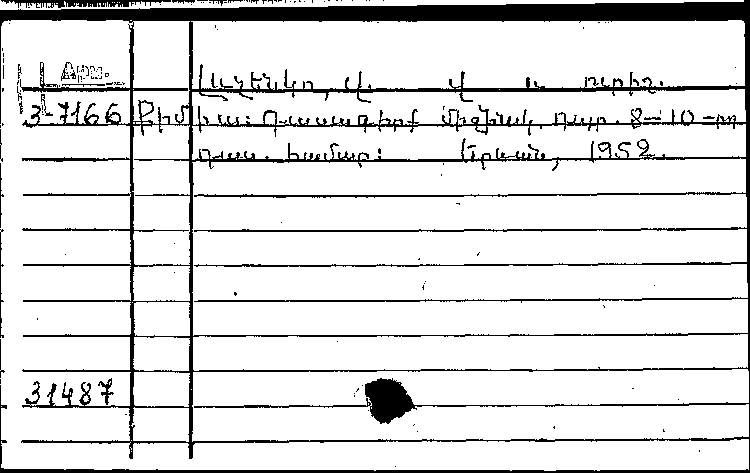 Արм.
Լևչենկո, Վ. Վ. և ուրիշ.
3-7166 Քիմիա: Դասագիրք միջնակ. դպր. 8-10-րդ
դաս. համար: Երևան, 1952.
31487